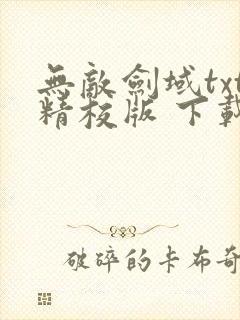 無敵劍域txt
精校版 下載
破碎的卡布奇